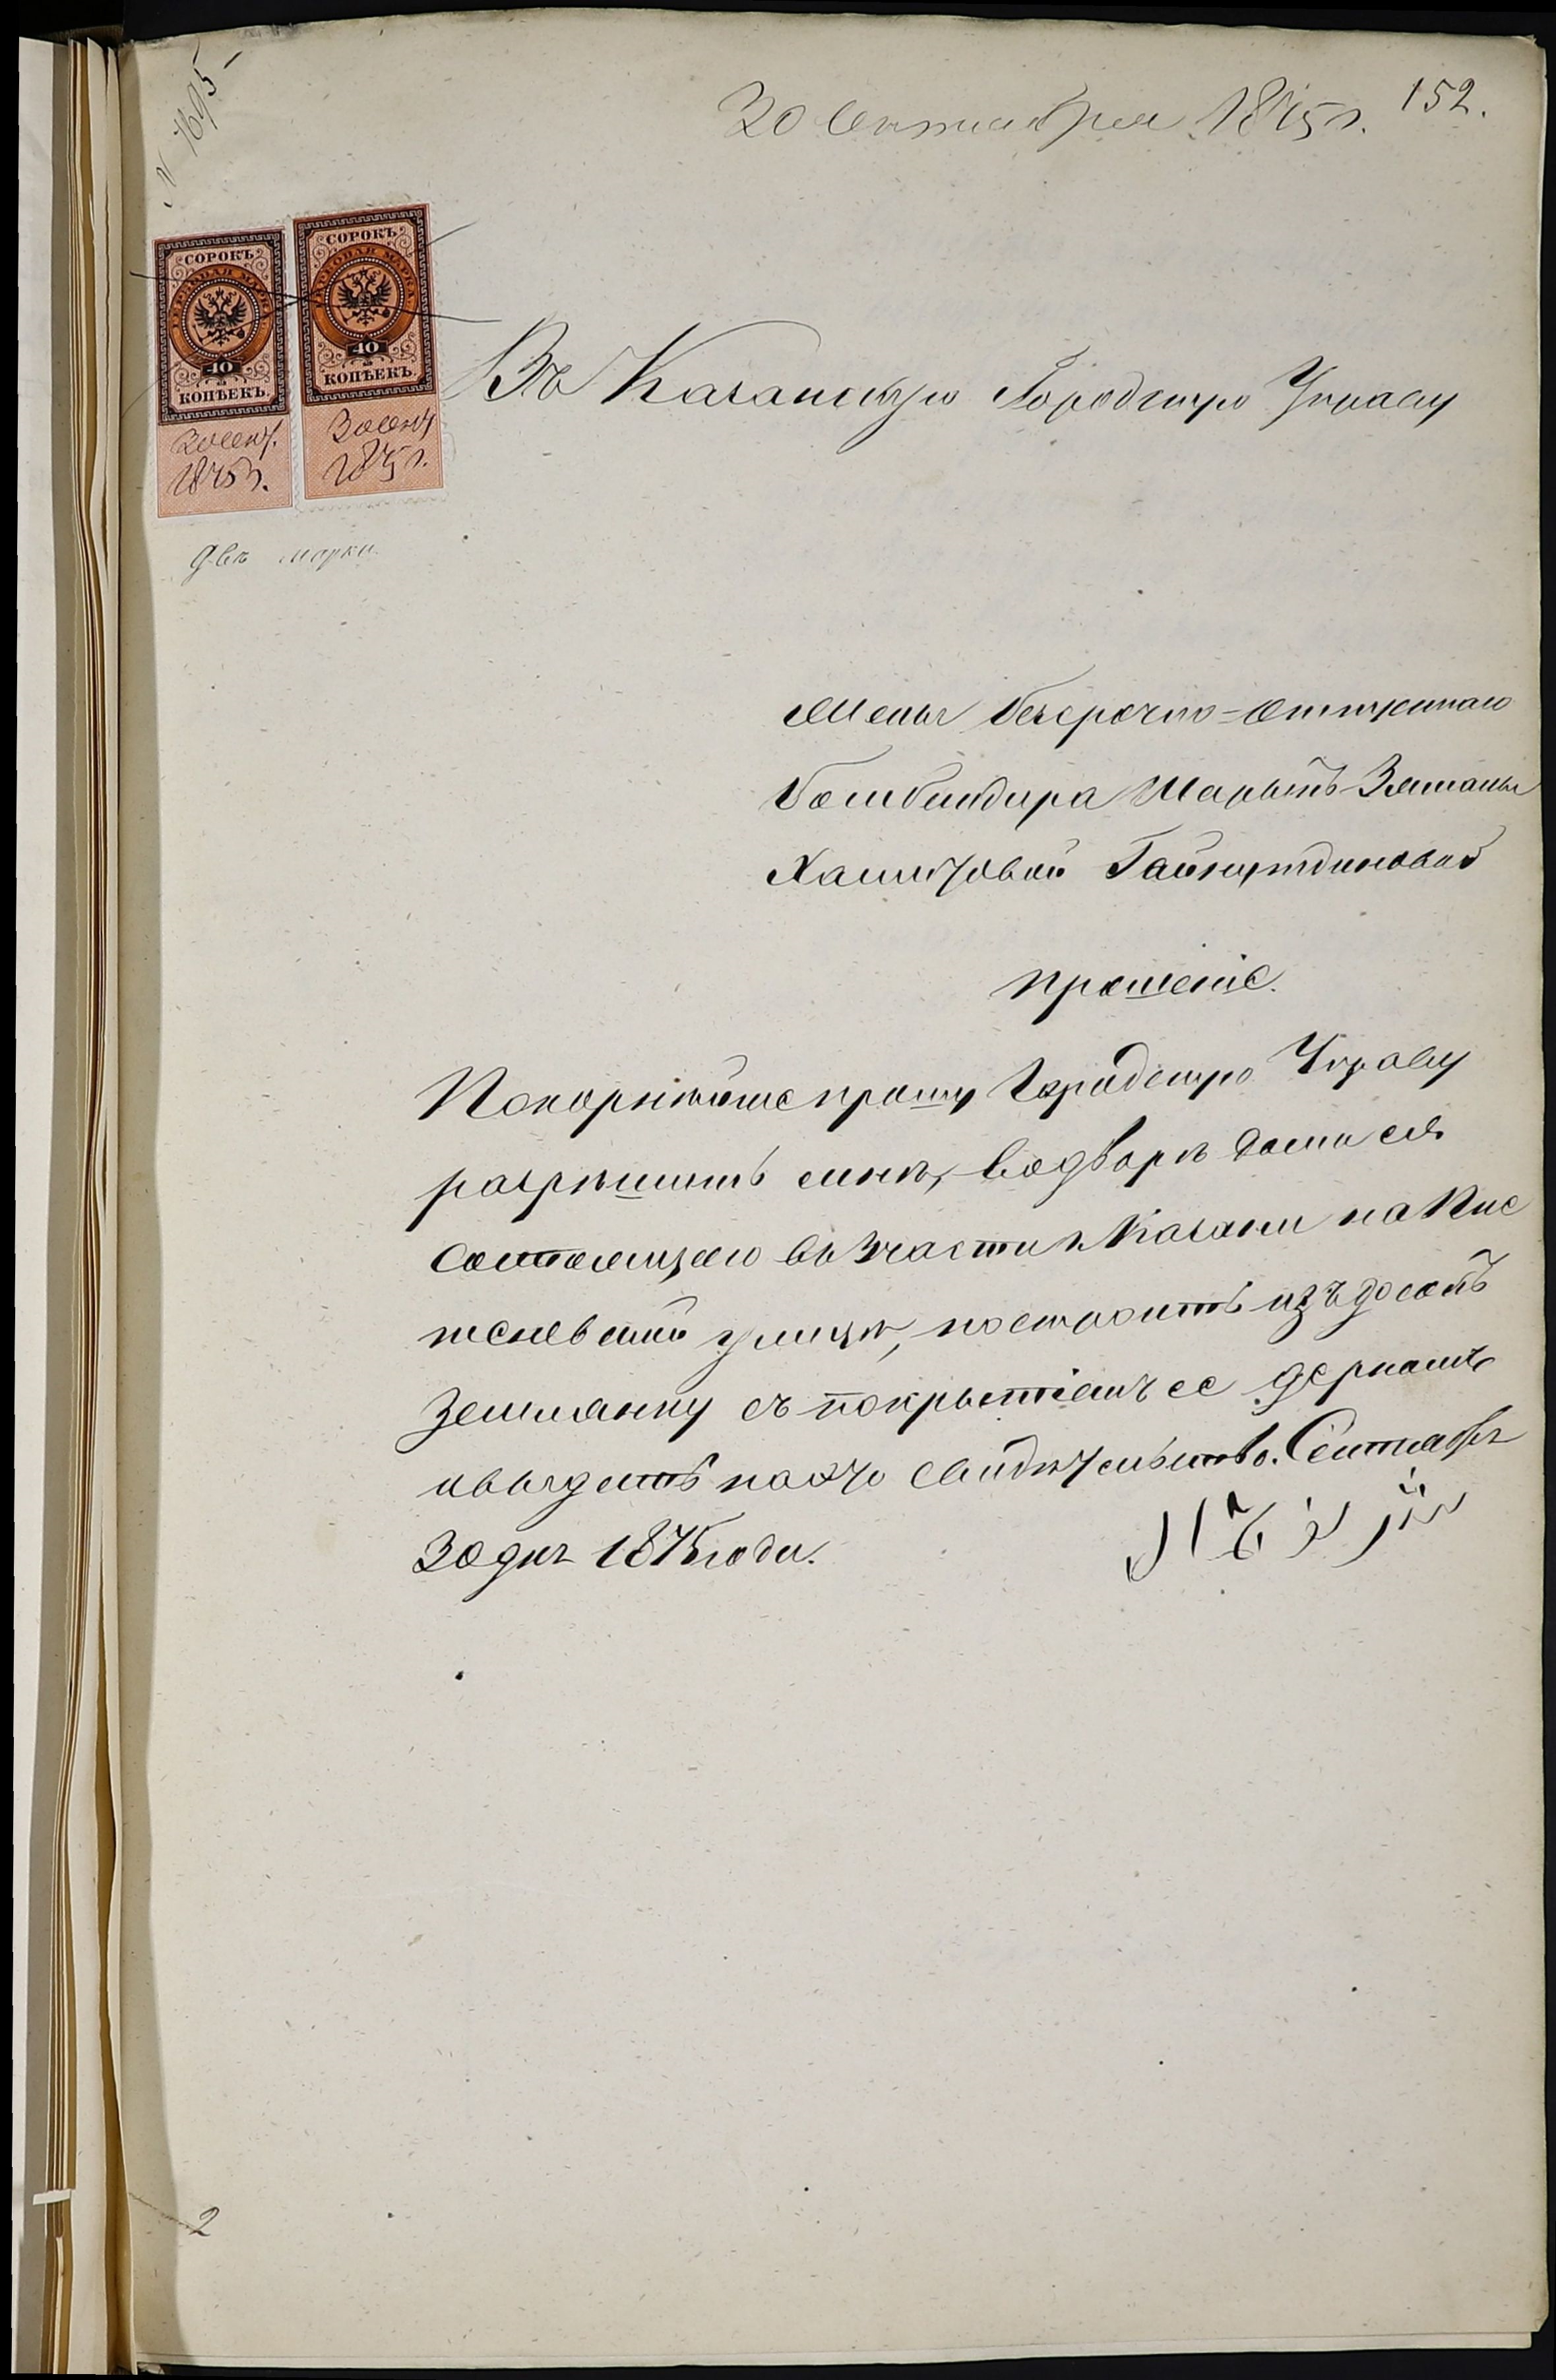 № 7695
30 Сентября 1875 г.
152.
СОРОКЪ
ГЕРБОВАЯ МАРКА
40
КОПѢЕКЪ
30 сент.
1875 г.
СОРОКЪ
ГЕРБОВАЯ МАРКА
40
КОПѢЕКЪ
30 сент
1875 г.
Двѣ марки
Въ Казанскую Городскую Управу
Жены безсрочно-отпускнаго
бомбандира
Хамитовой Гайнутдиновой
прошеніе.
Покорнѣйше прошу Городскую Управу
разрѣшить мнѣ, во дворѣ дома
состоящаго въ части г. Казани на
улицѣ, построить изъ досокъ
землянку съ покрытіемъ ее дерномъ
и выдать на это свидѣтельство. Сентября
30 дня 1875 года.
2